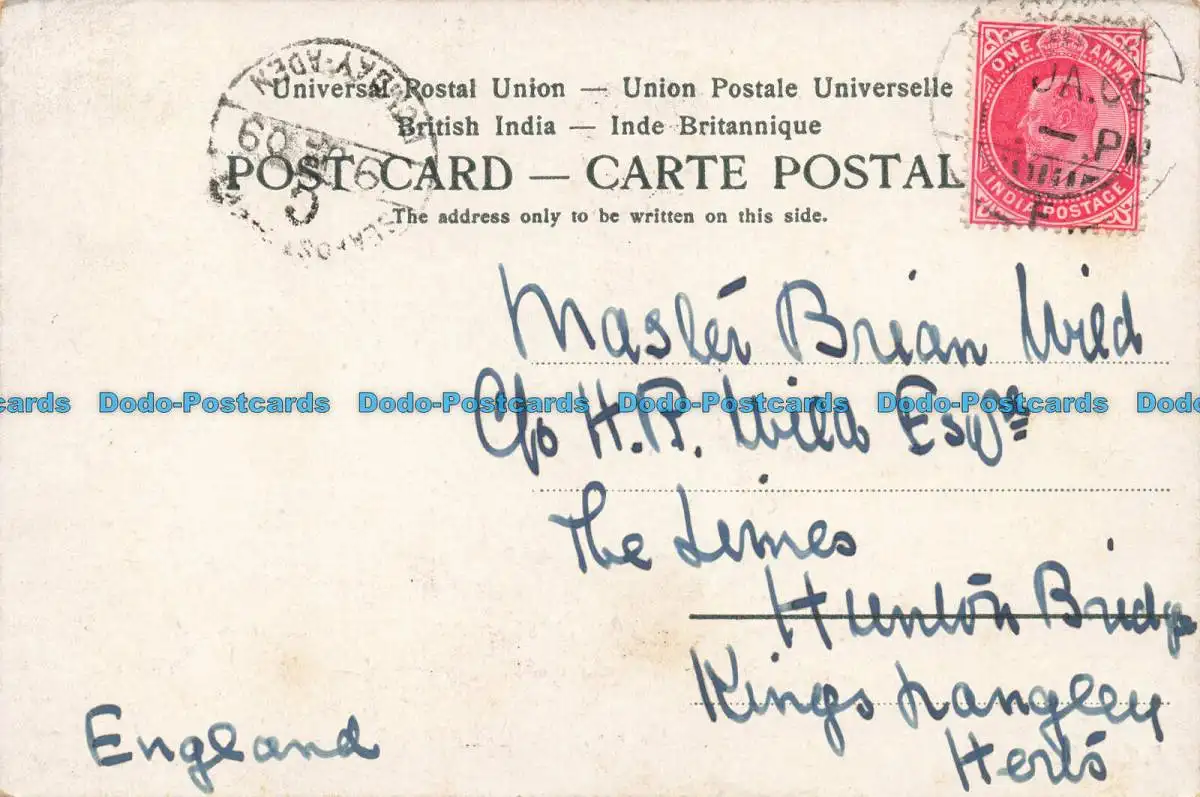 Universal Postal Union — Union Postale Universelle
British India — Inde Britannique
POST CARD — CARTE POSTAL
The address only to be written on this side.
BOMBAY-ADEN
SEA POST
09
C
ONE ANNA
JA.09
PM
INDIA POSTAGE
F
Master Brian Wild
C/o H.R. Wild Esqre
Dodo-Postcards Dodo-Postcards Dodo-Postcards Dodo-Postcards
The Limes
Hunton Bridge
Kings Langley
Herts
England